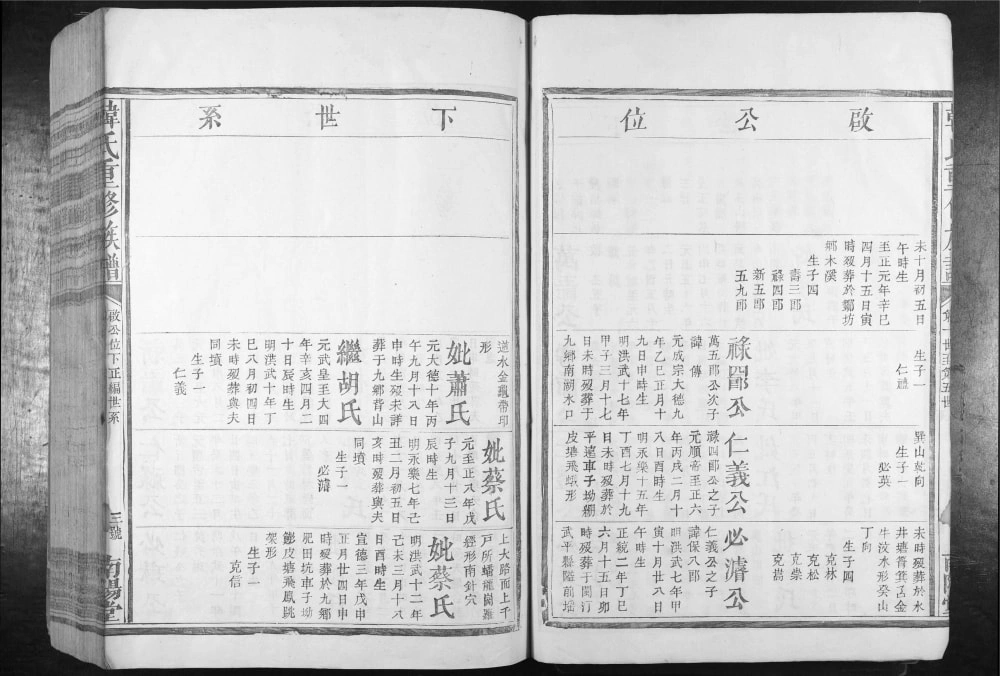 啟公位
未十月初五日
午時生
至正元年辛巳
四月十五日寅
時歿葬於鄒坊
鄉木溪
生子四
壽三郎
祿四郎
新五郎
五九郎
生子一
仁禮
祿四郎公
萬五郎公次子
諱傳
元成宗大德九
年乙巳正月十
九日申時生
明洪武十七年
甲子三月十七
日未時歿葬于
九鄉南湖水口
巽山乾向
生子一
必英
仁義公
祿四郎公之子
元順帝至正六
年丙戌二月十
八日酉時生
明永樂十五年
丁酉七月十九
日未時歿葬於
平遠車子坳綱
皮塘飛蛾形
未時歿葬於水
井塘膏箕舌金
牛汶水形癸山
丁向
生子四
克林
克松
克崇
克嵩
必濬公
仁義公之子
諱保八郎
明洪武七年甲
寅十月廿八日
午時生
正統二年丁巳
六月十五日卯
時歿葬于閩汀
武平縣隘前墟
下世系
道水金龜帶印
形
妣蕭氏
元大德十年丙
午九月十八日
申時生歿未詳
葬于九鄉背山
繼胡氏
元武皇至大四
年辛亥四月二
十日辰時生
明洪武十年丁
巳八月初四日
未時歿葬與夫
同墳
生子一
仁義
妣蔡氏
元至正八年戊
子九月十三日
辰時生
明永樂七年己
丑二月初五日
亥時歿葬與夫
同墳
生子一
必濬
上大路面上千
戶所蟠龍崗雖
經形南針穴
妣蔡氏
明洪武十二年
己未三月十八
日酉時生
宣德三年戊申
正月廿四日申
時歿葬於九鄉
肥田坑車子坳
鄱皮塘飛鳳跳
架形
生子一
克信
韓氏重修族譜
啟公位下正編世系
三號
南陽堂